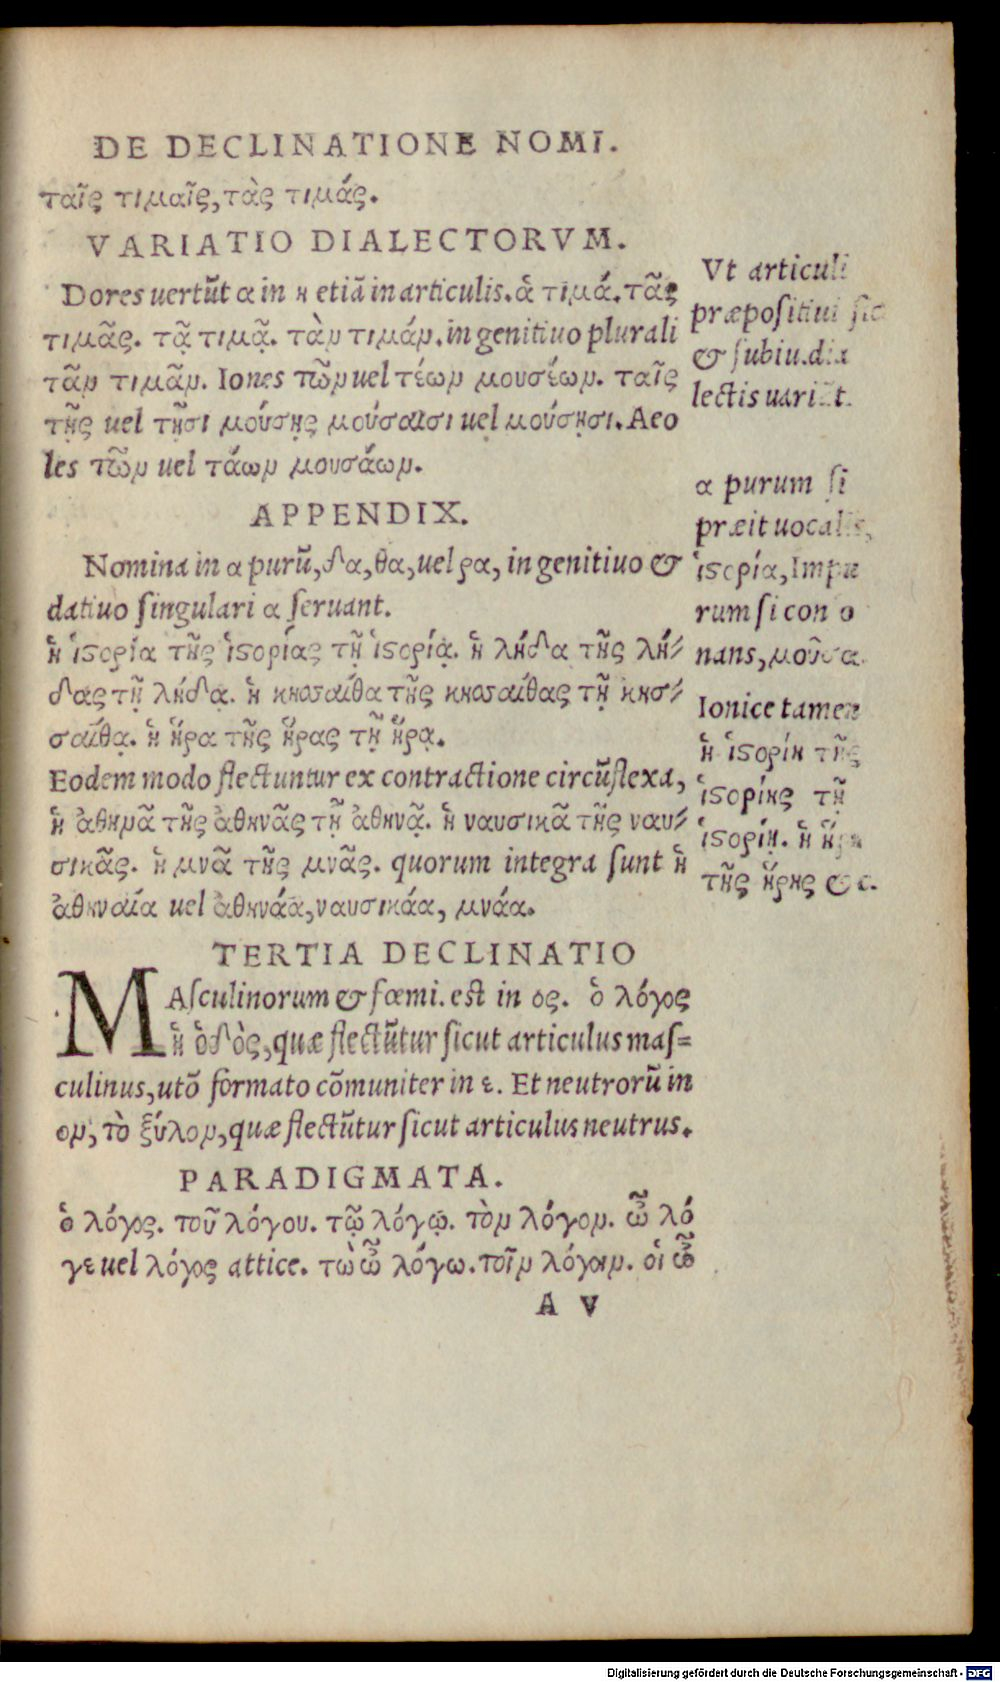 DE DECLINATIONE NOMI.
ταῖς τιμαῖς, τὰς τιμάς.
VARIATIO DIALECTORVM.
Dores uertũt α in η etiã in articulis. ἁ τιμά. τᾶς
τιμᾶς. τᾷ τιμᾷ. τὰν τιμάν. in genitiuo plurali
τᾶν τιμᾶν. Iones τῶν uel τέων μουσέων. ταῖς
τῇς uel τῇσι μούσῃς μούσαισι uel μούσῃσι. Aeo
les τῶν uel τάων μουσάων.
APPENDIX.
Nomina in α purũ, δα, θα, uel ρα, in genitiuo &
datiuo singulari α seruant.
ἡ ἱστορία τῆς ἱστορίας τῇ ἱστορίᾳ. ἡ λήδα τῆς λή-
δας τῇ λήδᾳ. ἡ κησσαίθα τῆς κησσαίθας τῇ κησ-
σαίθᾳ. ἡ ἥρα τῆς ἥρας τῇ ἥρᾳ.
Eodem modo flectuntur ex contractione circũflexa,
ἡ ἀθηνᾶ τῆς ἀθηνᾶς τῇ ἀθηνᾷ. ἡ ναυσικᾶ τῆς ναυ-
σικᾶς. ἡ μνᾶ τῆς μνᾶς. quorum integra sunt ἡ
ἀθηναία uel ἀθηνάα, ναυσικάα, μνάα.
TERTIA DECLINATIO
MAsculinorum & fœmi. est in ος. ὁ λόγος
ἡ ὁδὸς, quæ flectũtur sicut articulus mas=
culinus, utõ formato cõmuniter in ε. Et neutrorũ in
ον, τὸ ξύλον, quæ flectũtur sicut articulus neutrus.
PARADIGMATA.
ὁ λόγος. τοῦ λόγου. τῷ λόγῳ. τὸν λόγον. ὦ λό
γε uel λόγος attice. τὼ ὦ λόγω. τοῖν λόγοιν. οἱ ὦ
A V
Vt articuli
præpositiui sic
& subiu. dia
lectis uariãt.
α purum si
præit uocalis,
ἱστορία, Impu
rum si con o
nans, μοῦσα.
Ionice tamen
ἡ ἱστορίη τῆς
ἱστορίης τῇ
ἱστορίῃ. ἡ ἥρη
τῆς ἥρης &c.
Digitalisierung gefördert durch die Deutsche Forschungsgemeinschaft - DFG